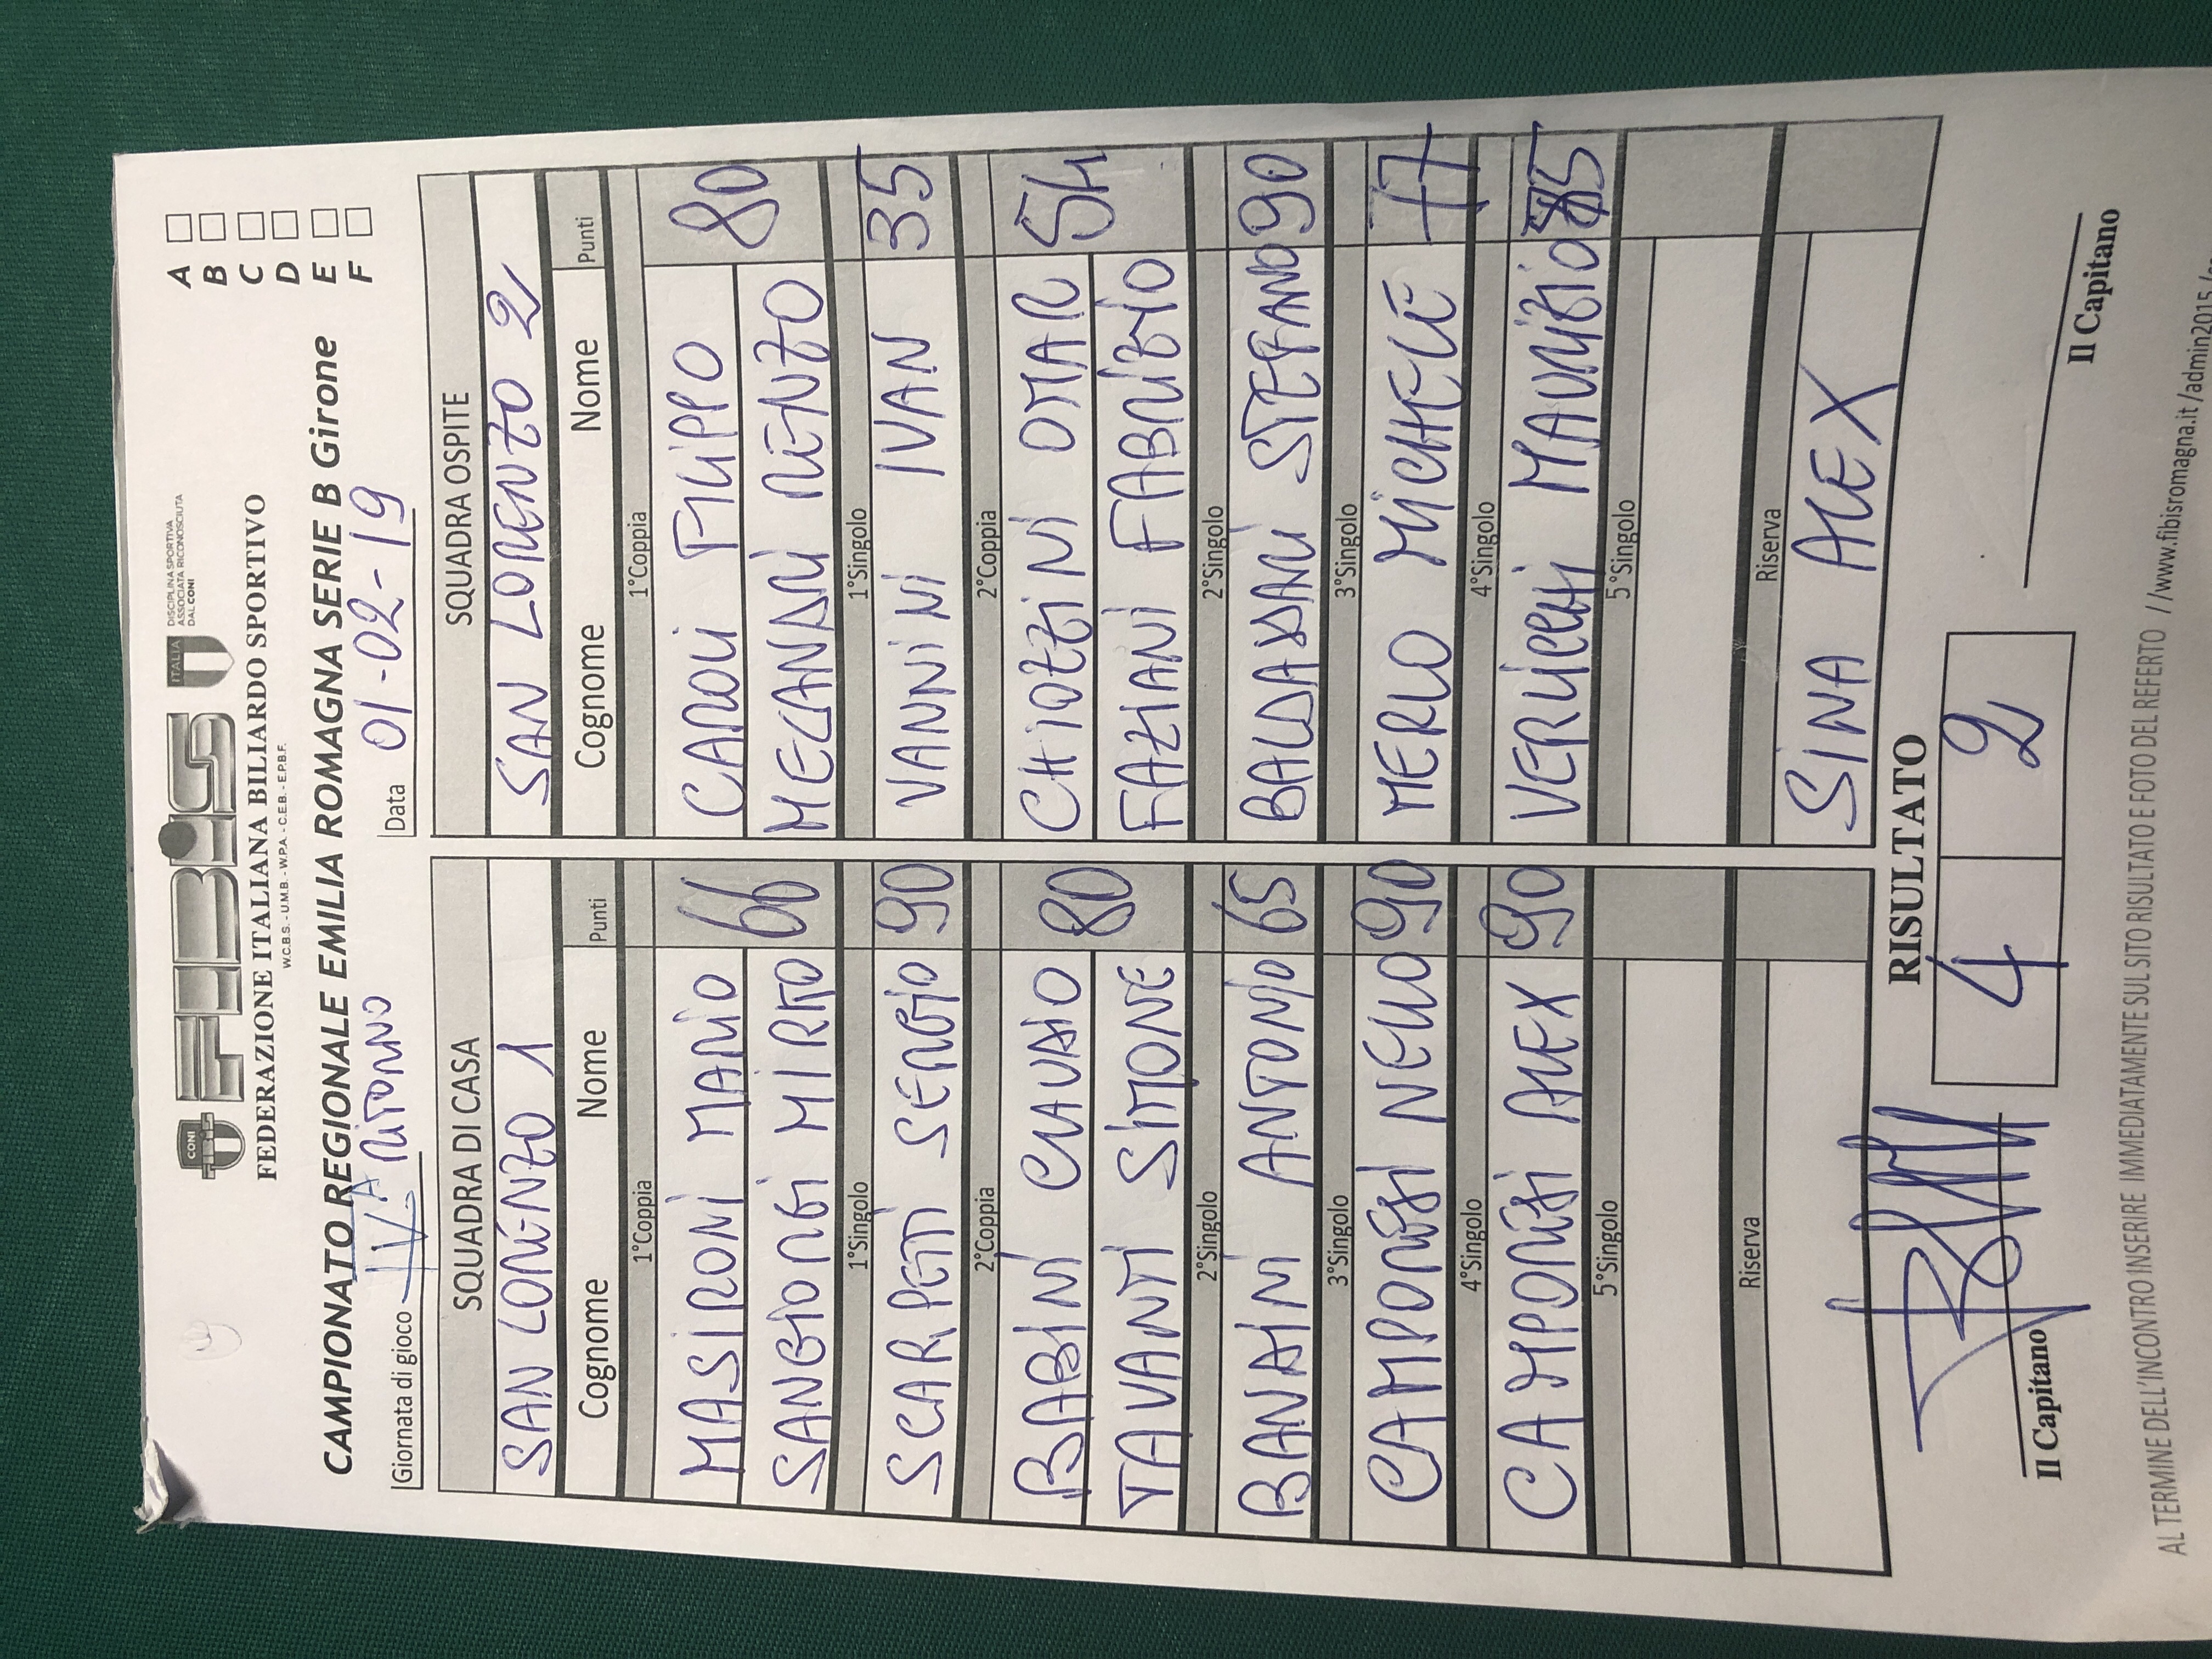 CONI
FIBiS
ITALIA
DISCIPLINA SPORTIVA
ASSOCIATA RICONOSCIUTA
DAL CONI
FEDERAZIONE ITALIANA BILIARDO SPORTIVO
W.C.B.S. - U.M.B. - W.P.A. - C.E.B. - E.P.B.F.
A
B
C
D
E
F
CAMPIONATO REGIONALE EMILIA ROMAGNA SERIE B Girone
Giornata di gioco IVA RITORNO Data 01-02-19
SQUADRA DI CASA SQUADRA OSPITE
SAN LORENZO 1 SAN LORENZO 2
Cognome Nome Punti Cognome Nome Punti
1°Coppia 1°Coppia
MASIRONI MARIO 66 CAROLI FILIPPO 80
SANGIORGI MIRKO MECANDRI RENZO
1°Singolo 1°Singolo
SCARPETTI SERGIO 90 VANNINI IVAN 35
2°Coppia 2°Coppia
BABINI CLAUDIO 80 CHIOZZINI OMAR 54
TAVANTI SIMONE FAZIANI FABRIZIO
2°Singolo 2°Singolo
ANTONIO 65 STEFANO 90
3°Singolo 3°Singolo
CAMPORESI NELLO 90 MERLO MICHELE 77
4°Singolo 4°Singolo
CAMPORESI ALEX 90 VERLICCHI MAURIZIO
5°Singolo 5°Singolo
Riserva Riserva
SINA ALEX
RISULTATO
4 2
Il Capitano Il Capitano
AL TERMINE DELL'INCONTRO INSERIRE IMMEDIATAMENTE SUL SITO RISULTATO E FOTO DEL REFERTO //www.fibisromagna.it/admin2015/